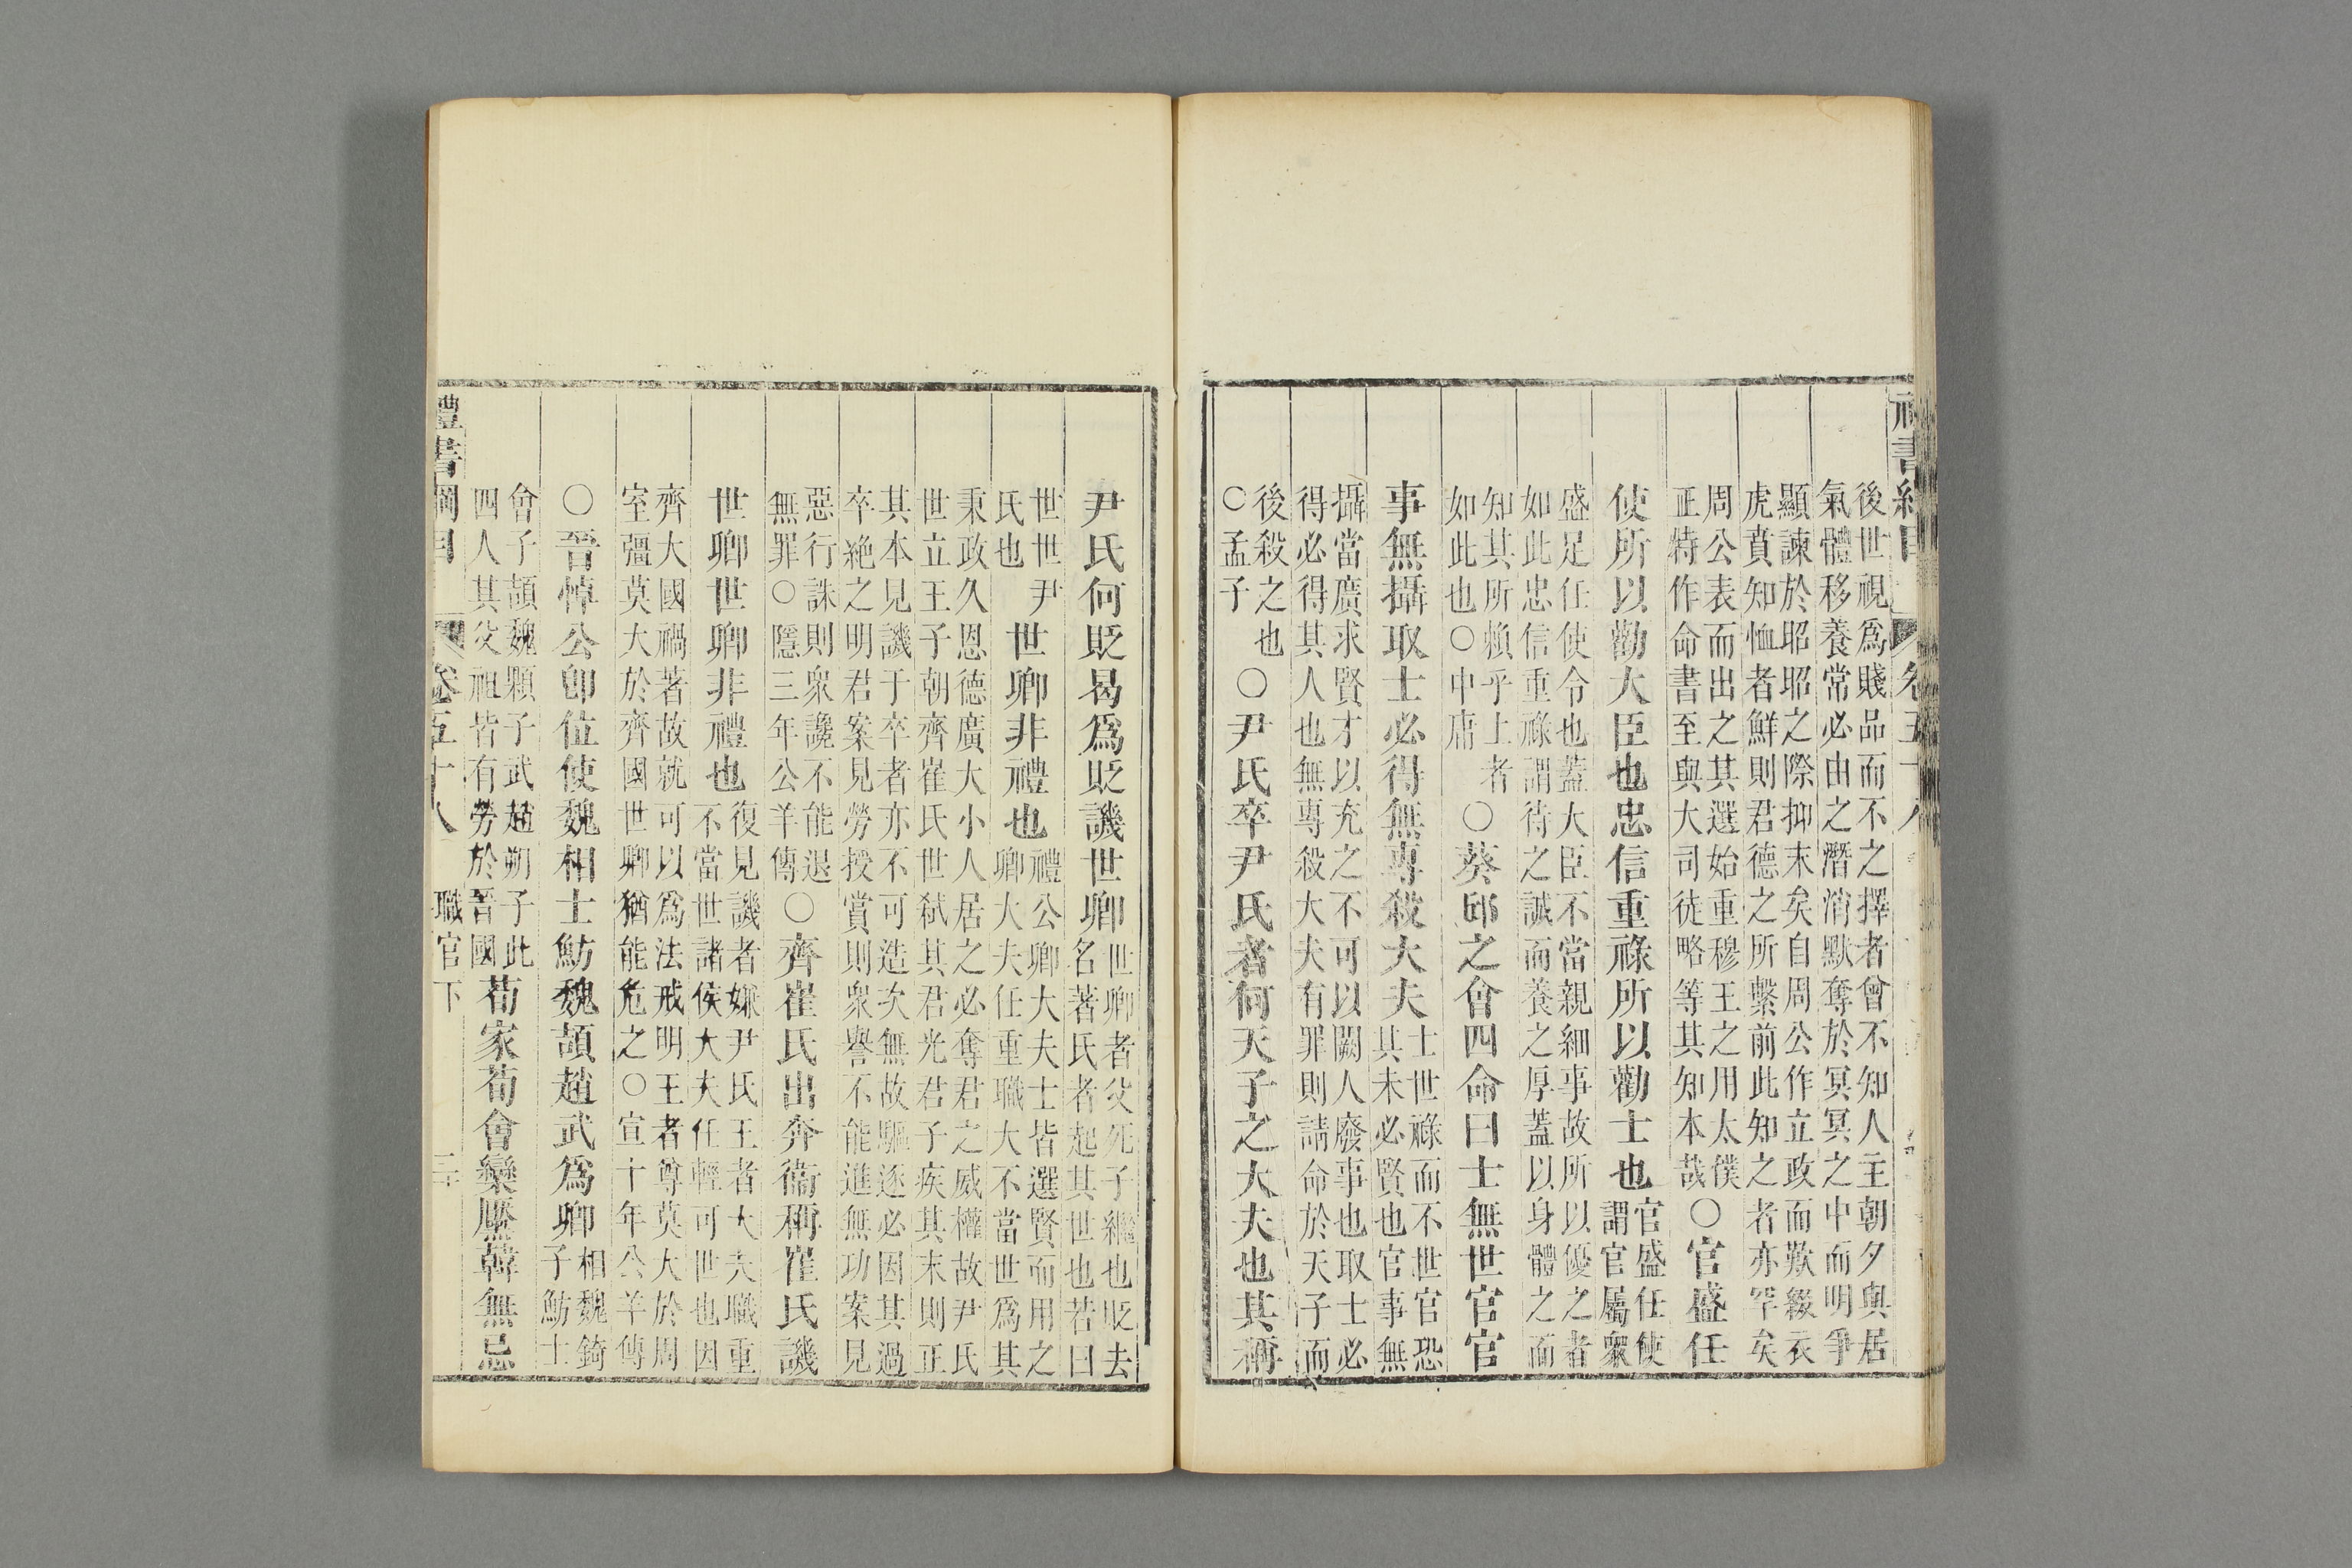 禮書綱目
卷五十八
後世視爲賤品而不之擇者曾不知人主朝夕與居
氣體移養常必由之潛消默奪於冥冥之中而明爭
顯諫於昭昭之際抑末矣自周公作立政而歎綴衣
虎賁知恤者鮮則君德之所繫前此知之者亦罕矣
周公表而出之其選始重穆王之用太僕
正特作命書至與大司徒略等其知本哉
○官盛任
使所以勸大臣也忠信重祿所以勸士也
官盛任使
謂官屬衆
盛足任使令也蓋大臣不當親細事故所以優之者
如此忠信重祿謂待之誠而養之厚蓋以身體之而
知其所賴乎上者
如此也○中庸
○葵邱之會四命曰士無世官官
事無攝取士必得無專殺大夫
士世祿而不世官恐
其未必賢也官事無
攝當廣求賢才以充之不可以闕人廢事也取士必
得必得其人也無專殺大夫有罪則請命於天子而
後殺之也
○孟子
○尹氏卒尹氏者何天子之大夫也其稱
尹氏何貶曷爲貶譏世卿
世卿者父死子繼也貶去
名著氏者起其世也若曰
世世尹
氏也
世卿非禮也
禮公卿大夫士皆選賢而用之
卿大夫任重職大不當世爲其
秉政久恩德廣大小人居之必奪君之威權故尹氏
世立王子朝齊崔氏世弒其君光君子疾其末則正
其本見譏于卒者亦不可造次無故驅逐必因其過
卒絶之明君案見勞授賞則衆譽不能進無功案見
惡行誅則衆讒不能退
無罪○隱三年公羊傳
○齊崔氏出奔衞稱崔氏譏
世卿世卿非禮也
復見譏者嫌尹氏王者大夫職重
不當世諸侯大夫任輕可世也因
齊大國禍著故就可以爲法戒明王者尊莫大於周
室彊莫大於齊國世卿猶能危之○宣十年公羊傳
○晉悼公卽位使魏相士魴魏頡趙武爲卿
相魏錡
子魴士
會子頡魏顆子武趙朔子此
四人其父祖皆有勞於晉國
荀家荀會欒黶韓無忌
禮書綱目
卷五十八
職官下